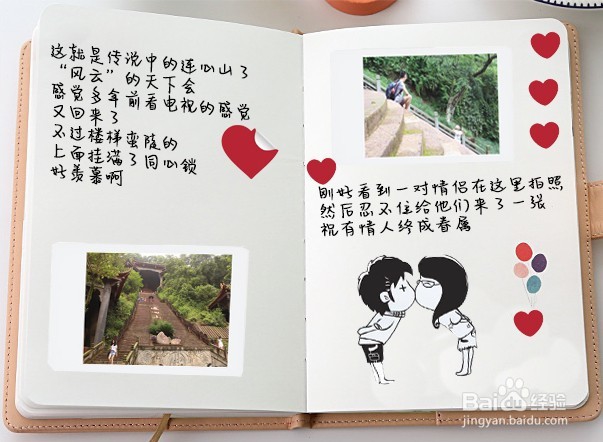 这就是传说中的连心山了
“风云”的天下会
感觉多年前看电视的感觉
又回来了
不过楼梯蛮陡的
上面挂满了同心锁
好羡慕啊
刚好看到一对情侣在这里拍照
然后忍不住给他们来了一张
祝有情人终成眷属
Baidu经验
jingyan.baidu.com